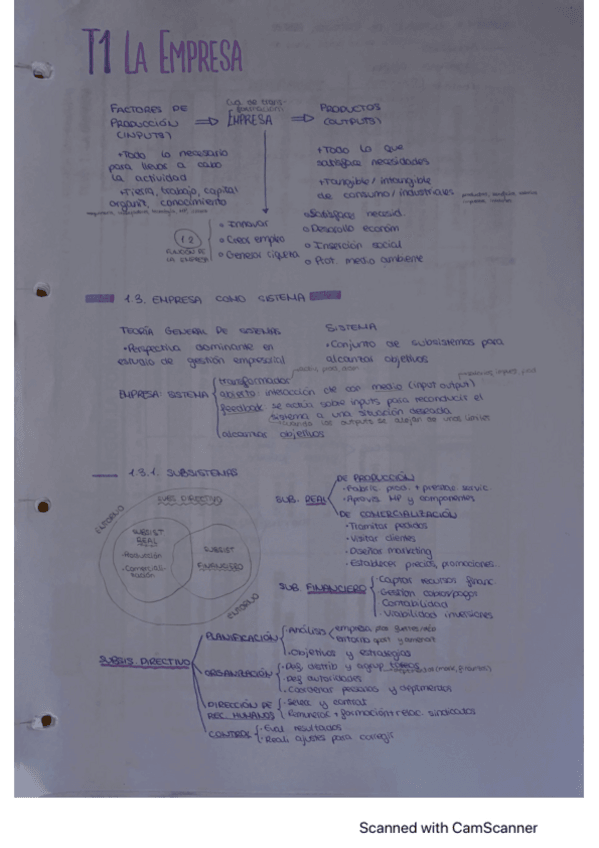 T1 LA EMPRESA
FACTORES DE PRODUCCIÓN (INPUTS)
⇒ EMPRESA ⇒
PRODUCTOS (OUTPUTS)
+Todo lo necesario
para llevar a cabo
la actividad
+Tierra, trabajo, capital
organiz, conocimiento
+Todo lo que
satisface necesidades
+Tangible / intangible
de consumo / industriales
1.2
FUNCIÓN DE
LA EMPRESA
o Innovar
o Crear empleo
o Generar riqueza
o Satisfacer necesid.
o Desarrollo económ
o Inserción social
o Prot. medio ambiente
1.3. EMPRESA COMO SISTEMA
TEORÍA GENERAL DE SISTEMAS
•Perspectiva dominante en
estudio de gestión empresarial
SISTEMA
•Conjunto de subsistemas para
alcanzar objetivos
EMPRESA: SISTEMA
transformador
abierto: interacción con medio (input output)
feedback se actúa sobre inputs para reconducir el
sistema a una situación deseada
cuando los outputs se alejan de unos límites
alcanzar objetivos
1.3.1. SUBSISTEMAS
SUBS. DIRECTIVO
ENTORNO
SUBSIST
REAL
•Producción
•Comerciali-
zación
SUBSIST
FINANCIERO
ENTORNO
SUB. REAL
DE PRODUCCIÓN
•Fabric. prod. + prestar servic.
•Aprovis. MP y componentes
DE COMERCIALIZACIÓN
•Tramitar pedidos
•Visitar clientes
•Diseñar marketing
•Establecer precios, promociones...
SUB. FINANCIERO
•Captar recursos financ.
•Gestión cobros/pagos
Contabilidad
•Viabilidad inversiones
SUBSIS. DIRECTIVO
PLANIFICACIÓN
•Análisis
empresa
entorno
•Objetivos y estrategias
ORGANIZACIÓN
•Def. distrib y agrup tareas
•Def. autoridades
•Coordinar personas y dptmentos
DIRECCIÓN DE
REC. HUMANOS
•Selec. y contrat.
•Remunerar + formación + relac. sindicatos
CONTROL
•Eval. resultados
•Realiz ajustes para corregir
Scanned with CamScanner